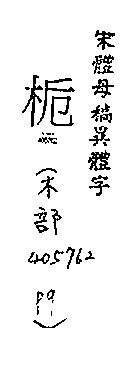 宋體母稿異體字
栀
(木部
405762
P9)